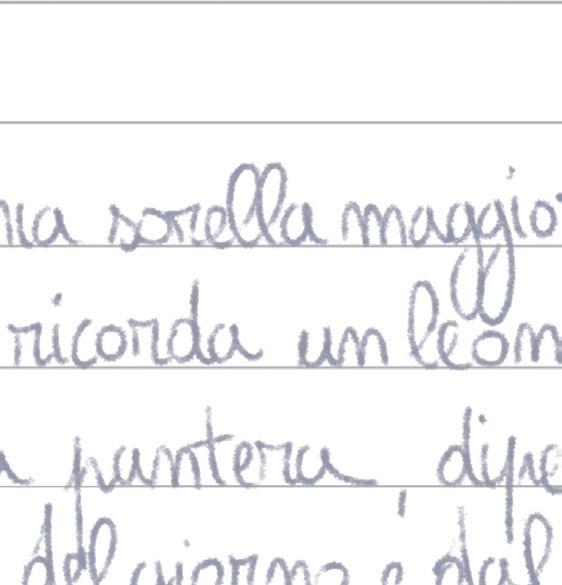 mia sorella maggio
ricorda un leon
a pantera, dipe
del giorno e dal